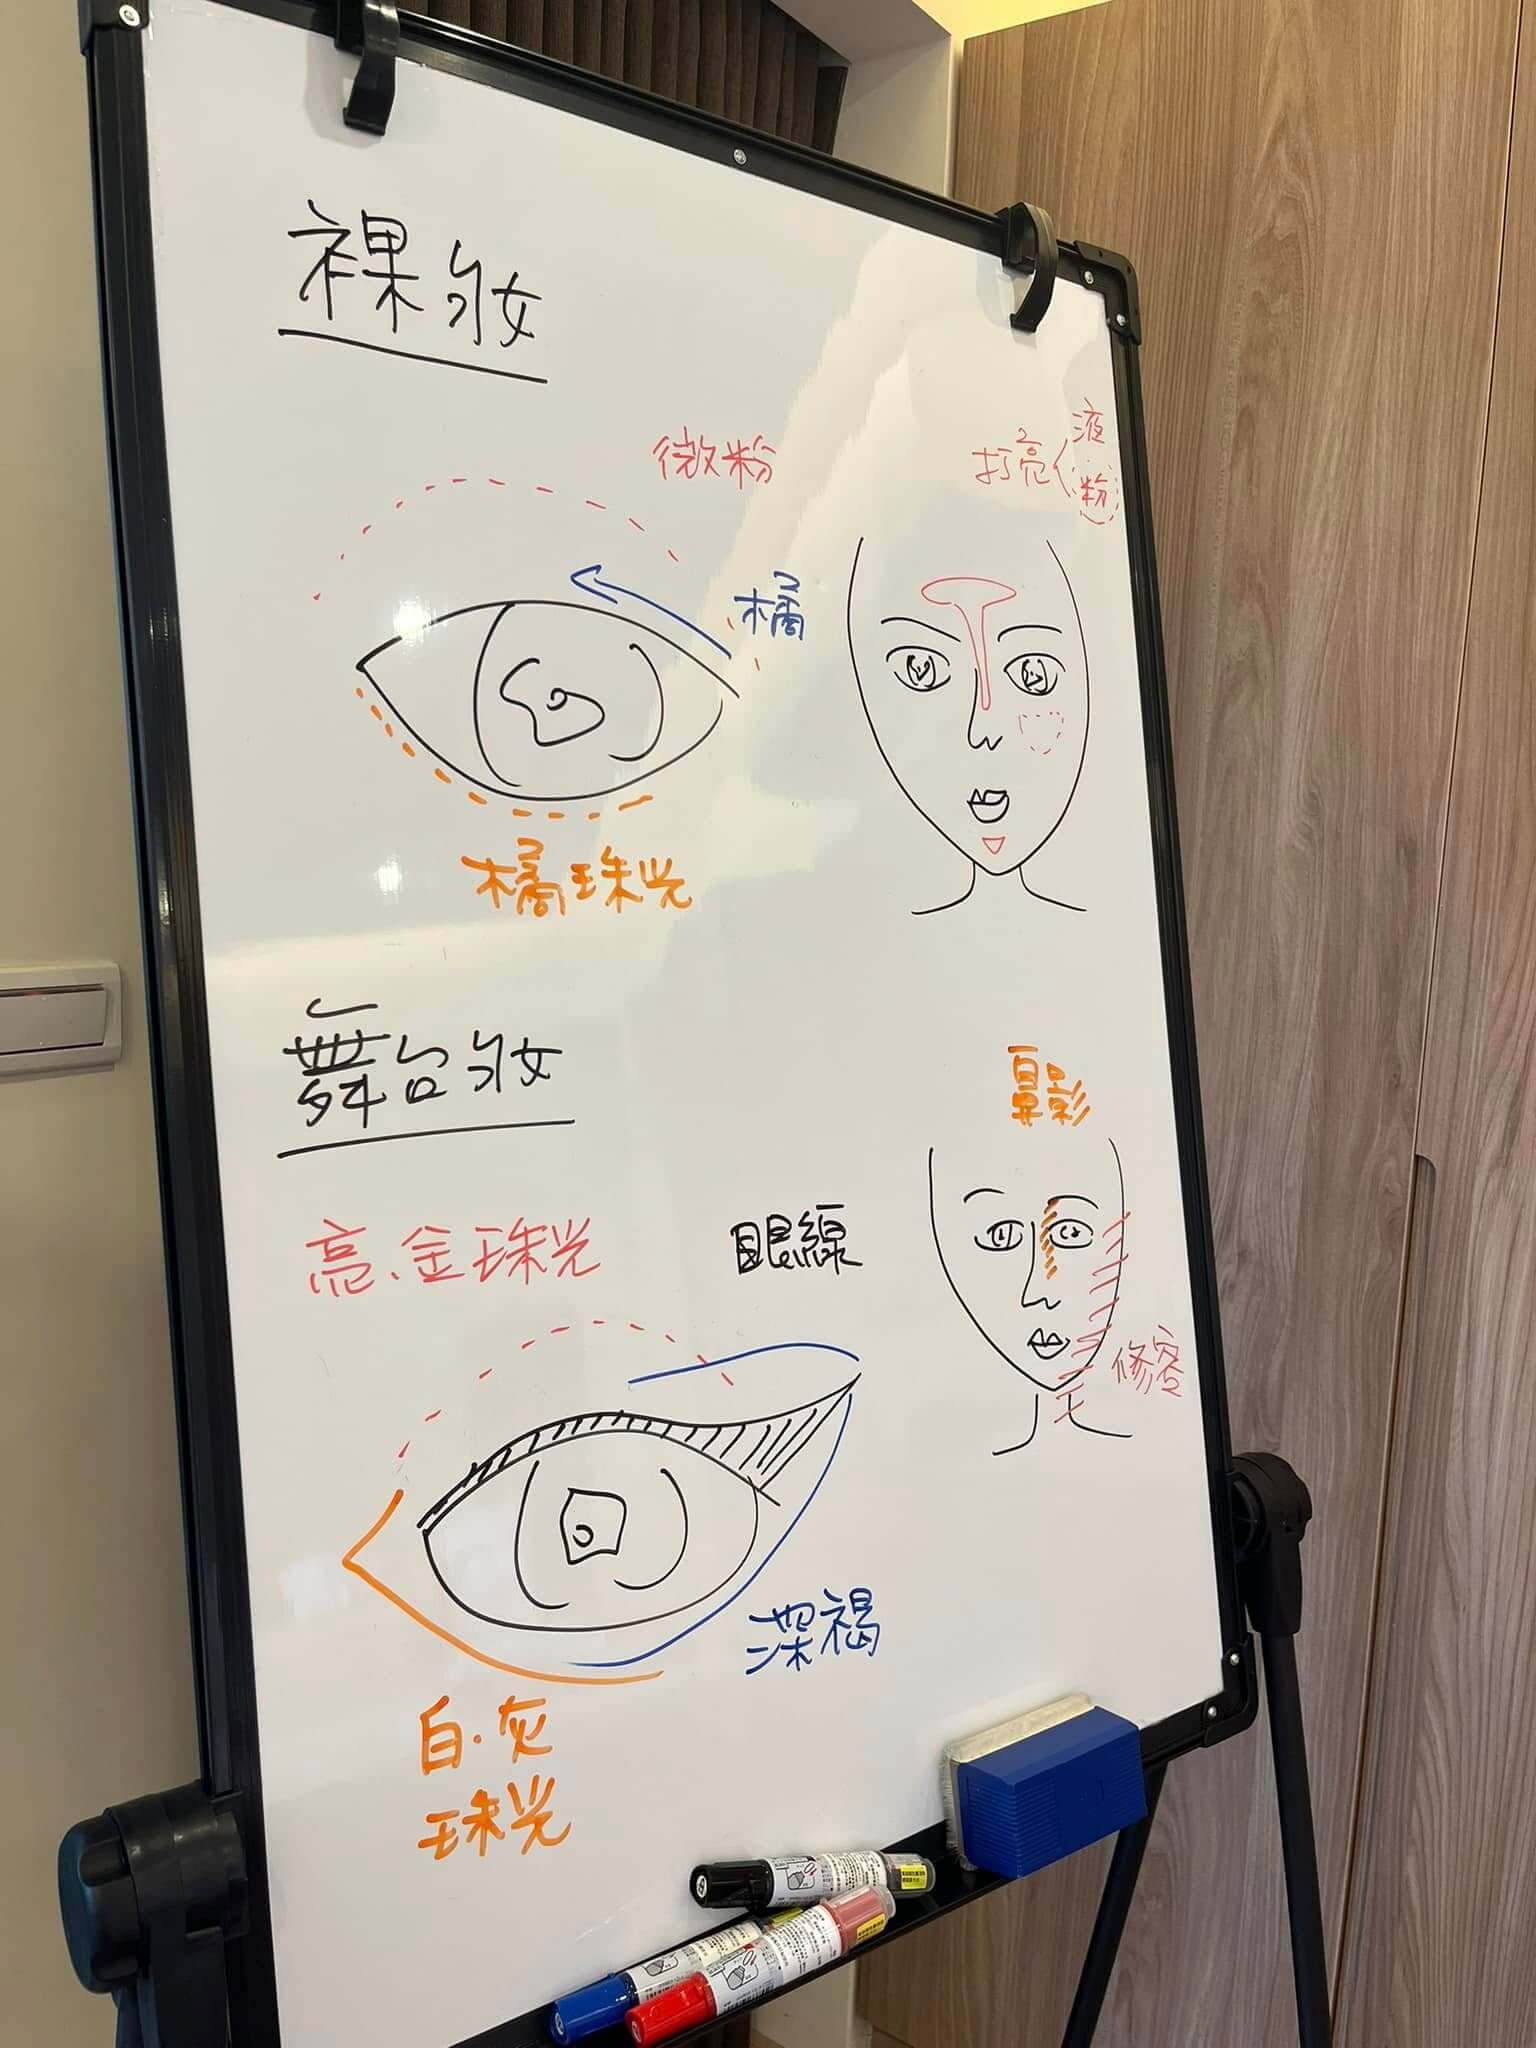 裸妝
微粉
打亮
液
粉
橘
橘珠光
舞台妝
鼻影
亮.金珠光
眼線
修容
深褐
白.灰
珠光